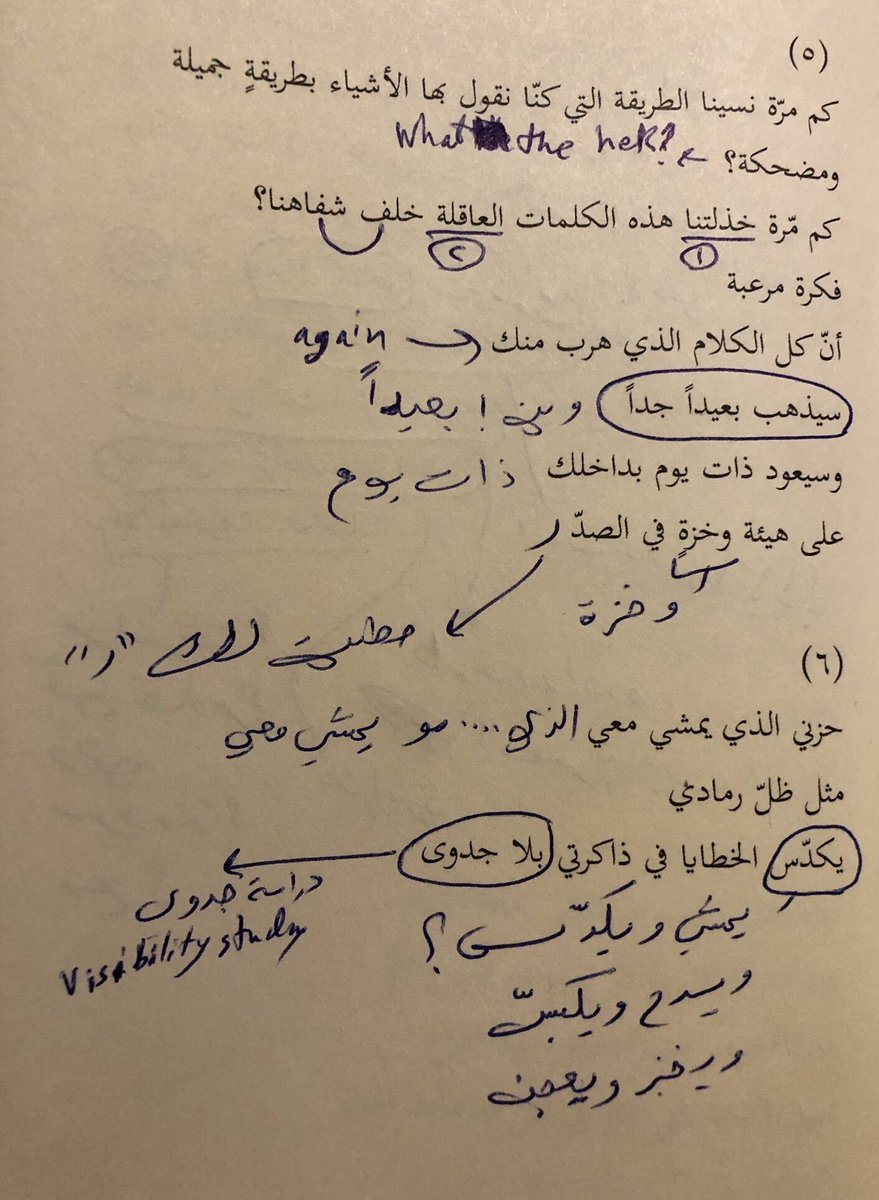 (٥)
كم مرّة نسينا الطريقة التي كنّا نقول بها الأشياء بطريقةٍ جميلة
ومضحكة؟ ← What the hek?
كم مّرة خذلتنا هذه الكلمات العاقلة خلف شفاهنا؟
١ ٢
فكرة مرعبة
أنّ كل الكلام الذي هرب منك again
سيذهب بعيداً جداً وين ! بعيداً
وسيعود ذات يوم بداخلك ذات يوم
على هيئة وخزةٍ في الصدّ ر
وخزة
حطيت لك "ر"
(٦)
حزني الذي يمشي معي الذي .... مو يمشي معي
مثل ظلّ رمادي
يكدّس الخطايا في ذاكرتي بلا جدوى
دراسة جدوى
Visibility study
يمشي ويكدّس؟
ويسدح ويكبّس
ويخبز ويعجن